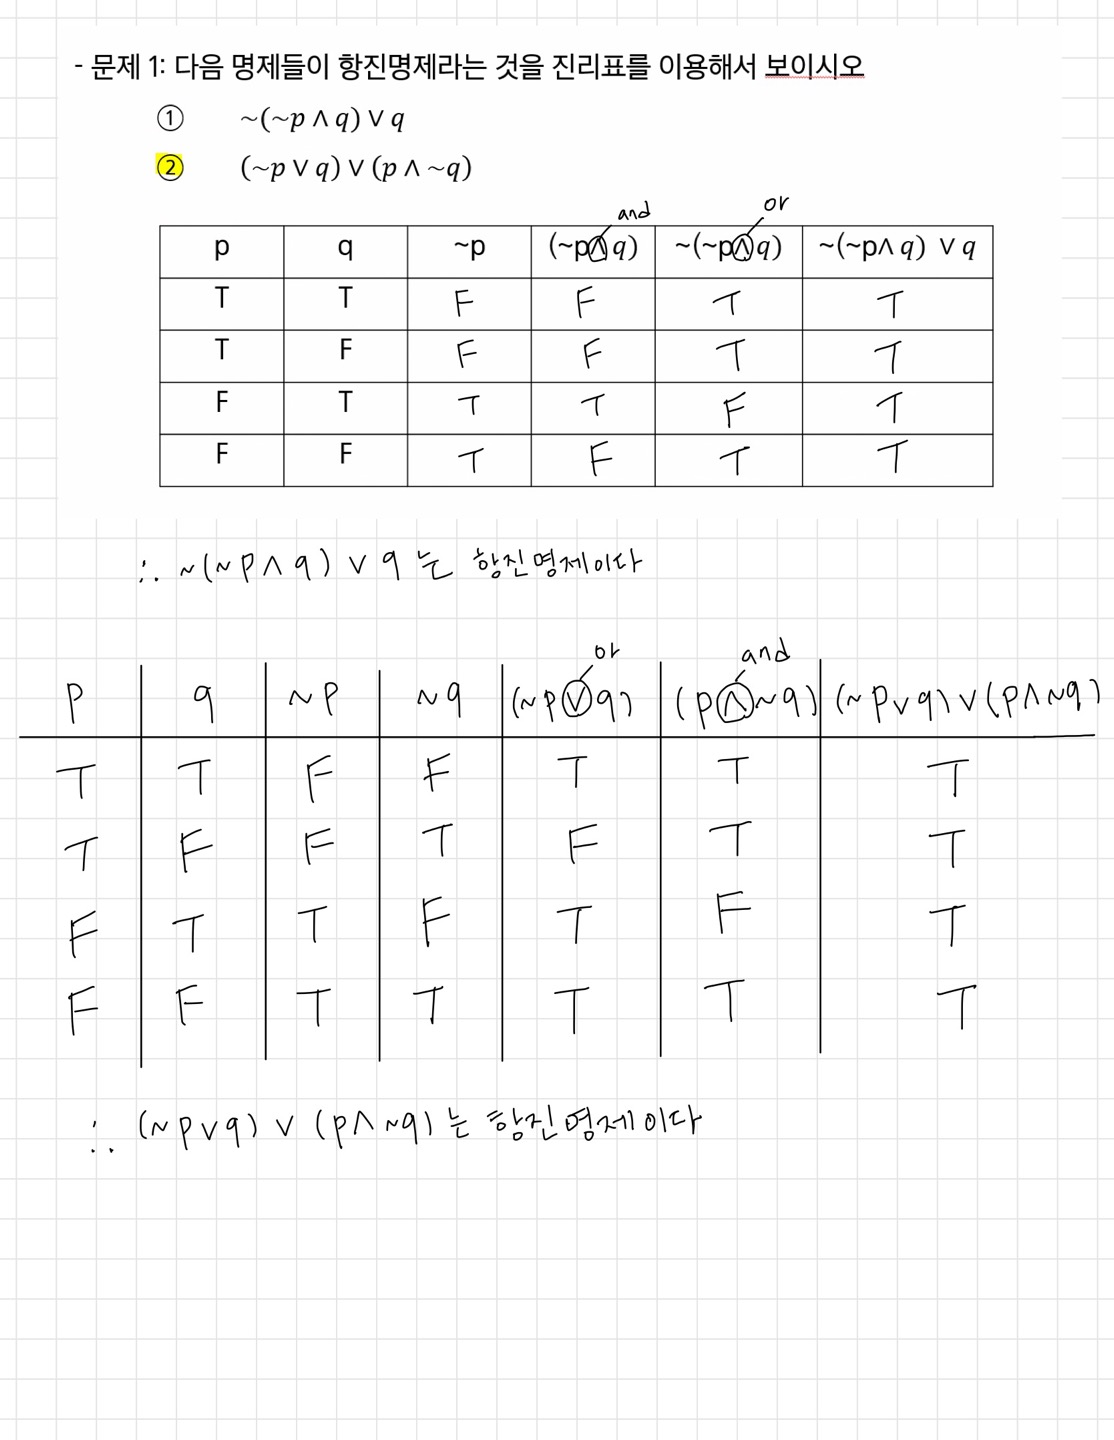 - 문제 1: 다음 명제들이 항진명제라는 것을 진리표를 이용해서 보이시오
① ~(~p ∧ q) ∨ q
② (~p ∨ q) ∨ (p ∧ ~q)
and or
p q ~p (~p∧ q) ~(~p∧ q) ~(~p∧ q) ∨ q
T T F F T T
T F F F T T
F T T T F T
F F T F T T
∴ ~(~p∧q) ∨ q 는 항진명제이다
or and
p q ~p ~q (~p∨q) (p∧~q) (~p∨q)∨(p∧~q)
T T F F T T T
T F F T F T T
F T T F T F T
F F T T T T T
∴ (~p∨q) ∨ (p∧~q)는 항진명제이다